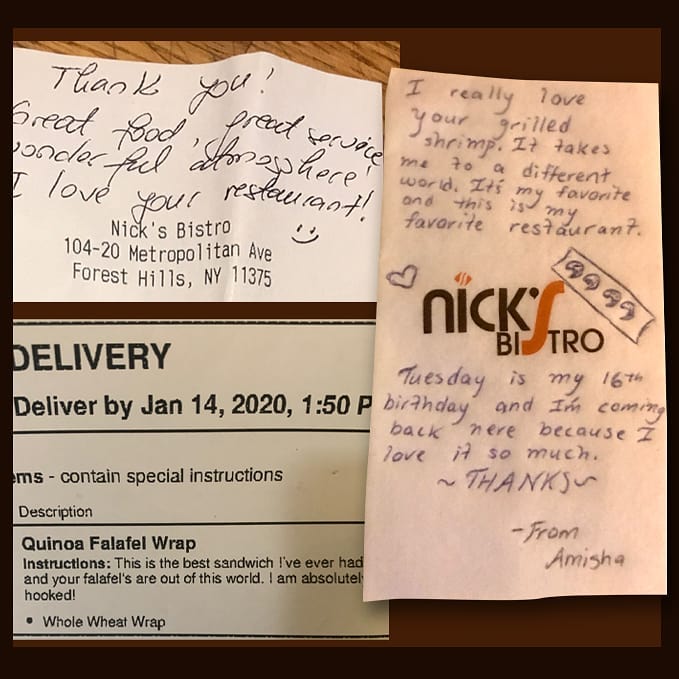 Thank you!
Great food, great service,
wonderful atmosphere!
I love your restaurant!
Nick's Bistro
104-20 Metropolitan Ave
Forest Hills, NY 11375
DELIVERY
Deliver by Jan 14, 2020, 1:50 P
ems - contain special instructions
Description
Quinoa Falafel Wrap
Instructions: This is the best sandwich I've ever had
and your falafel's are out of this world. I am absolutel
hooked!
• Whole Wheat Wrap
I really love
your grilled
shrimp. It takes
me to a different
world. It's my favorite
and this is my
favorite restaurant.
nick's
BISTRO
Tuesday is my 16th
birthday and I'm coming
back here because I
love it so much.
~THANKS~
-From
Amisha